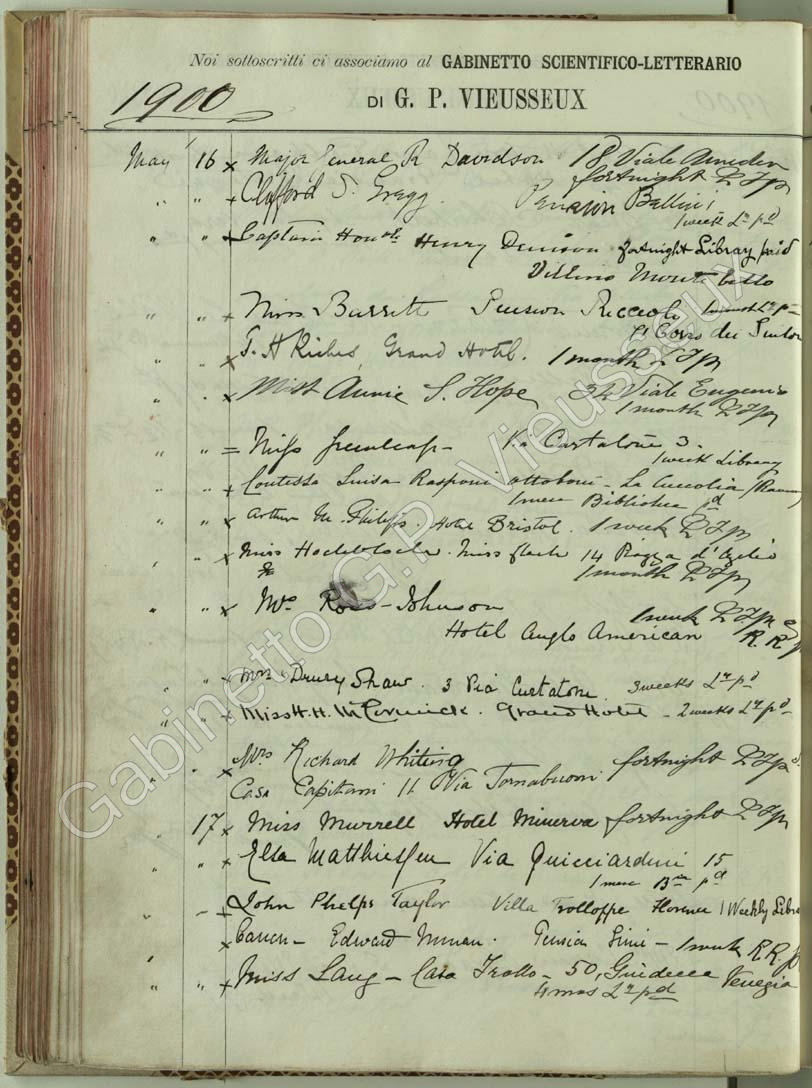 Noi sottoscritti ci associamo al GABINETTO SCIENTIFICO-LETTERARIO
1900
DI G. P. VIEUSSEUX
May 16 x Major General R Davidson 18 Viale Amedeo
fortnight
" " + Clifford S. Gregg. Pension Bellini
1 week Lr pd
" " + Captain Honble Henry Denison fortnight Library paid
Villino Montebello
" " + Miss Burrett Pension Piccioli 1 month Lr pd
Corso dei Tintori
" x T. H. Riches Grand Hotel. 1 month
" " x Miss Annie S. Hope 32 Viale Eugenio
1 month
" " = Miss Greenleaf - Via Curtatone 3.
1 week Library
" " + Contessa Luisa Rasponi - La
1 mese Biblioteca pd
" " x Arthur M. Philips. Hotel Bristol. 1 week
" " x Miss Miss 14 Piazza d'Azeglio
1 month
" " x Mrs Ross-Johnson 1 week
Hotel Anglo American R. R.
" " + Mrs Drury Shaw. 3 Via Curtatone. 3 weeks Lr pd
" " + Miss H. H. McCormick. Grand Hotel - 2 weeks Lr pd
" " x Mrs Richard Whiting fortnight
Casa Capitani 11 Via Tornabuoni
" 17 x Miss Murrell Hotel Minerva fortnight
" " x Ella Matthiessen Via Guicciardini 15
1 mese pd
" - + John Phelps Taylor Villa Trolloppe Florence 1 Weekly
" " x Canon - Edward Pension - 1 week R R
" " + Miss Lang - Casa Frollo - 50, Giudecca Venezia
4 mos Lr pd
Gabinetto G.P. Vieusseux